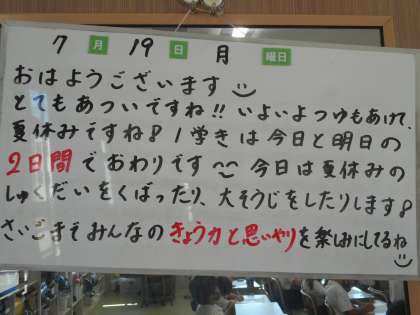 7月19日 月 曜日
おはようございます
とてもあついですね!! いよいよつゆもあけて、
夏休みですね! 1学きは今日と明日の
2日間でおわりです 今日は夏休みの
しゅくだいをくばったり、大そうじをしたりします!
さいごまでみんなのきょう力と思いやりを楽しみにしてるね